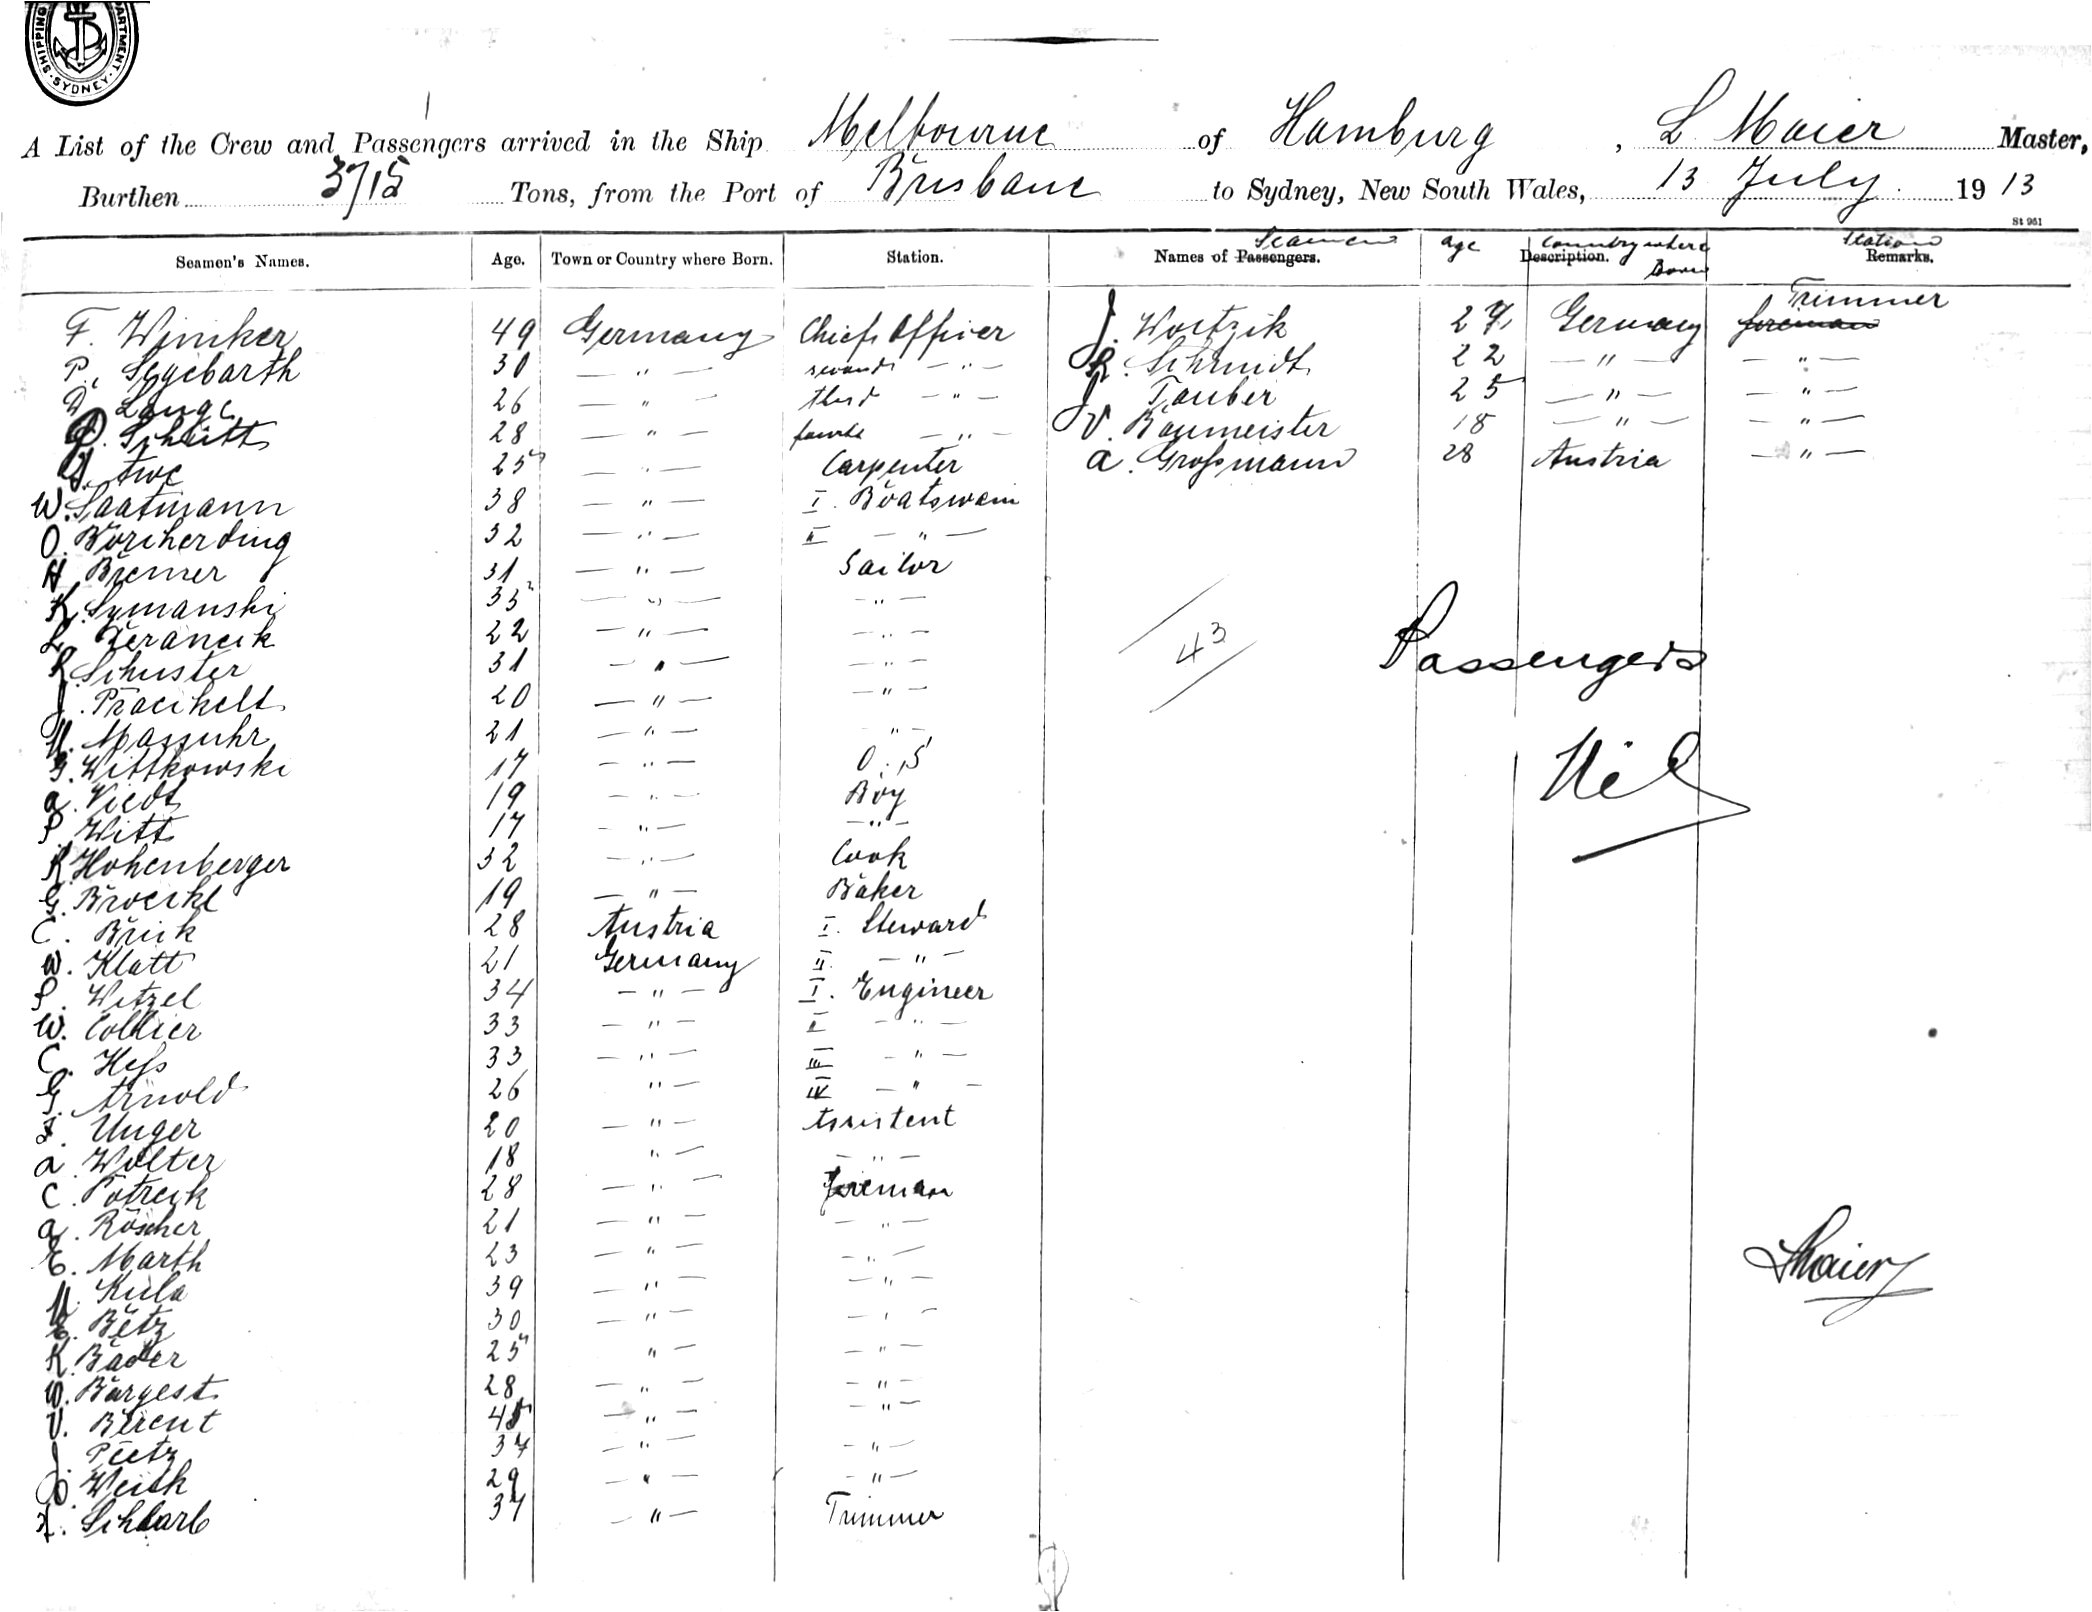 SHIPPING DEPARTMENT. SYDNEY
A List of the Crew and Passengers arrived in the Ship Melbourne of Hamburg, L Maier Master,
Burthen 3715 Tons, from the Port of Brisbane to Sydney, New South Wales, 13 July. 1913
St 951
Seamen's Names. Age. Town or Country where Born. Station. Names of Passengers. Seamen age Description. Country where Born Remarks. Station
F. Winiker 49 Germany Chief Officer J. Woitzik 27 Germany fireman Trimmer
P. Segebarth 30 — " — second — " — R. Schmidt 22 — " — — " —
Lange 26 — " — third — " — J Tauber 25 — " — — " —
Schütt 28 — " — fourth — " — V. Baumeister 18 — " — — " —
25 — " — Carpenter a. Großmann 28 Austria — " —
W. Saatmann 38 — " — I. Boatswain
O. Borcherding 32 — " — II — " —
H Bremer 31 — " — Sailor
K. Symanski 35 — " — — " —
L. 22 — " — — " —
R Schuster 31 — " — — " —
J. 20 — " — — " —
M. Massuhr 21 — " — — " —
G. Wittkowski 17 — " — O. S
a. Viedt 19 — " — Boy
P. Witt 17 — " — — " —
R. Hohenberger 32 — " — Cook
G. Broeckl 19 — " — Baker
C. Brick 28 Austria I. Steward
W. Klatt 21 Germany II. — " —
P. Witzel 34 — " — I. Engineer
W. Collier 33 — " — II — " —
C. Heß 33 — " — III — " —
G. Arnold 26 " — IV — " —
F. Unger 20 — " — Assistent
a. Wolter 18 " — — " —
C. Potrcyk 28 — " — fireman
a. Röscher 21 — " — — " —
E. Marth 23 — " — — " —
M. Kula 39 — " — — " —
E. Betz 30 — " — — " —
K. Bader 25 " — — " —
W. Bargest 28 — " — — " —
V. Berent 45 — " — — " —
J. Pietz 37 — " — — " —
Weith 29 — " — — " —
Schlarb 37 — " — Trimmer
43
Passengers
Nil
LMaier